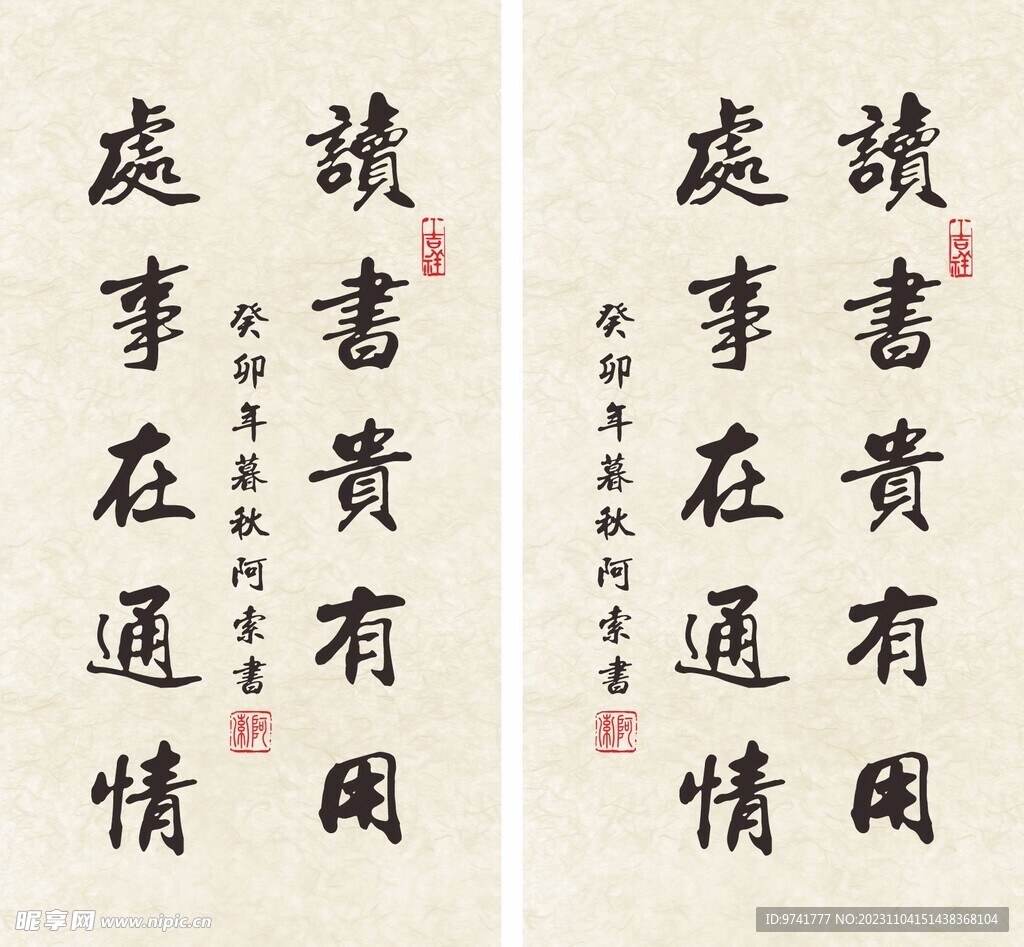 讀書貴有用
吉祥
癸卯年暮秋阿索書
阿索
處事在通情
讀書貴有用
吉祥
處事在通情
癸卯年暮秋阿索書
阿索
昵享网 www.nipic.cn
ID:9741777 NO:20231104151438368104